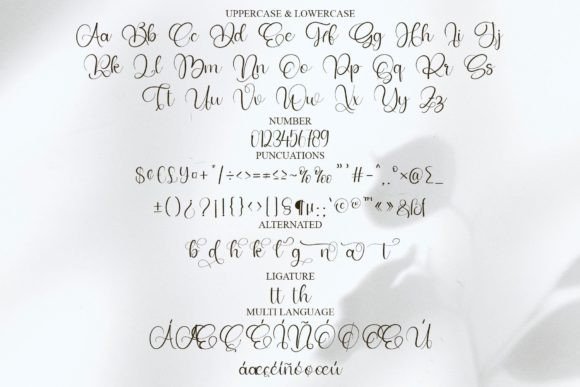 UPPERCASE & LOWERCASE
Aa Bb Cc Dd Ee Ff Gg Hh Ii Jj
Kk Ll Mm Nn Oo Pp Qq Rr Ss
Tt Uu Vv Ww Xx Yy Zz
NUMBER
0123456789
PUNCUATIONS
$¢€£¥¤+*/÷<>=±≤≥~%‰"'#-^,.°×@Σ_
±()¿?¡!{}<>[]§¶µ:;'©®™«»&
ALTERNATED
b d h k l g n a t
LIGATURE
tt th
MULTI LANGUAGE
ÁÆÇÉÍÑÓØŒÚ
áæçéíñóøœú